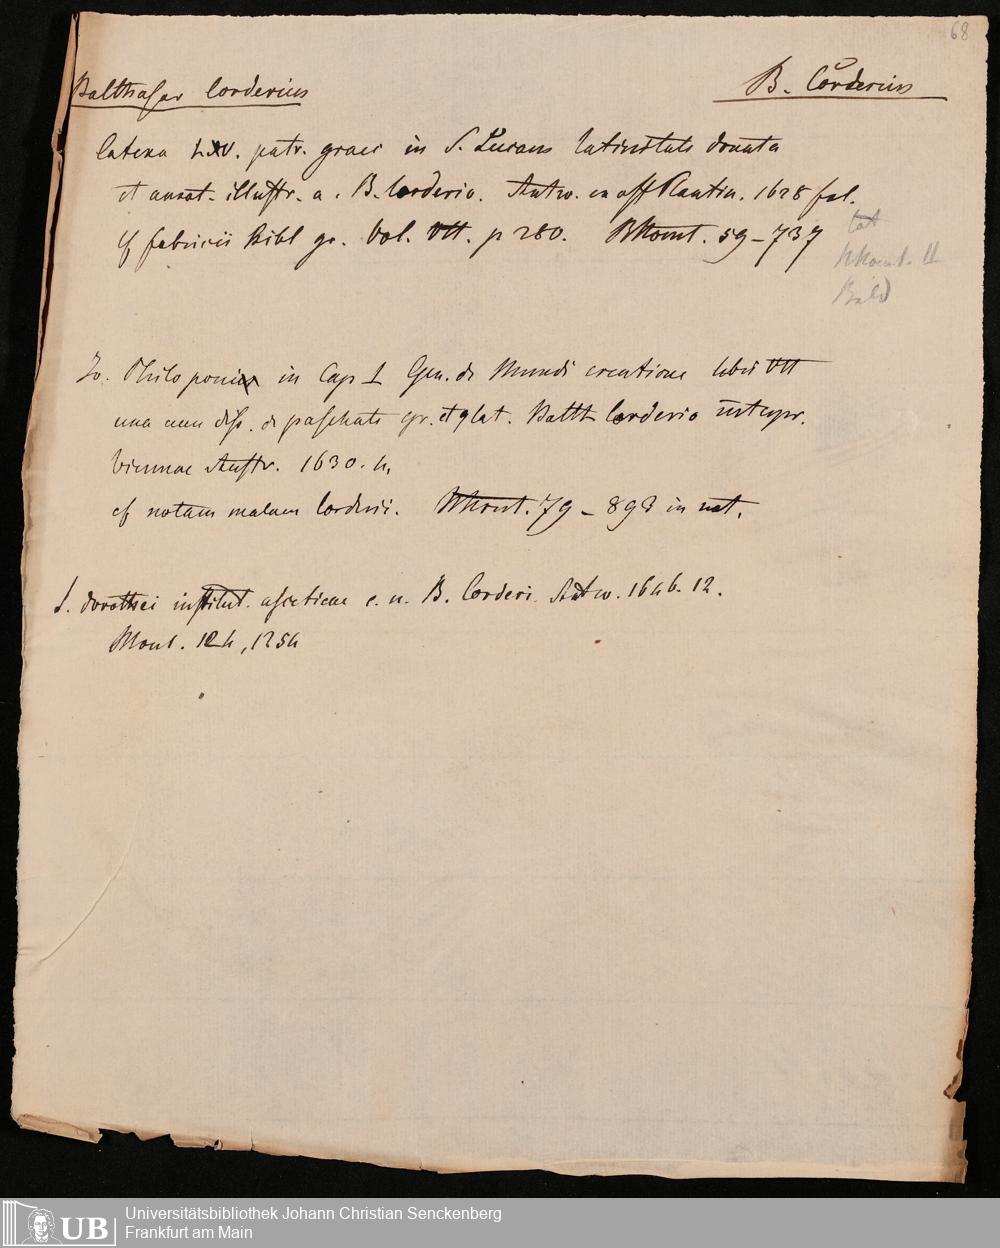 68
Balthasar Corderius B. Corderius
Catena LXV. patr. graec in S. Lucam latinitate donata
et annot. illustr. a. B. Corderio. Antw. ex off Plantin. 1628 fol.
cf fabricii bibl gr. Vol. VII. p 280. 59-737
lat
II
Jo. Philoponi in Cap I Gen. de Mundi creatione libri VII
una cum diss. de paschate gr. et lat. Balth Corderio interpr.
Viennae Austr. 1630. 4.
cf notam malam Corderii. 79-898 in
S. dorothei institut. asceticae e. u. B. Corderi. Antw. 1646. 12.
124, 1254
UB Universitätsbibliothek Johann Christian Senckenberg
Frankfurt am Main